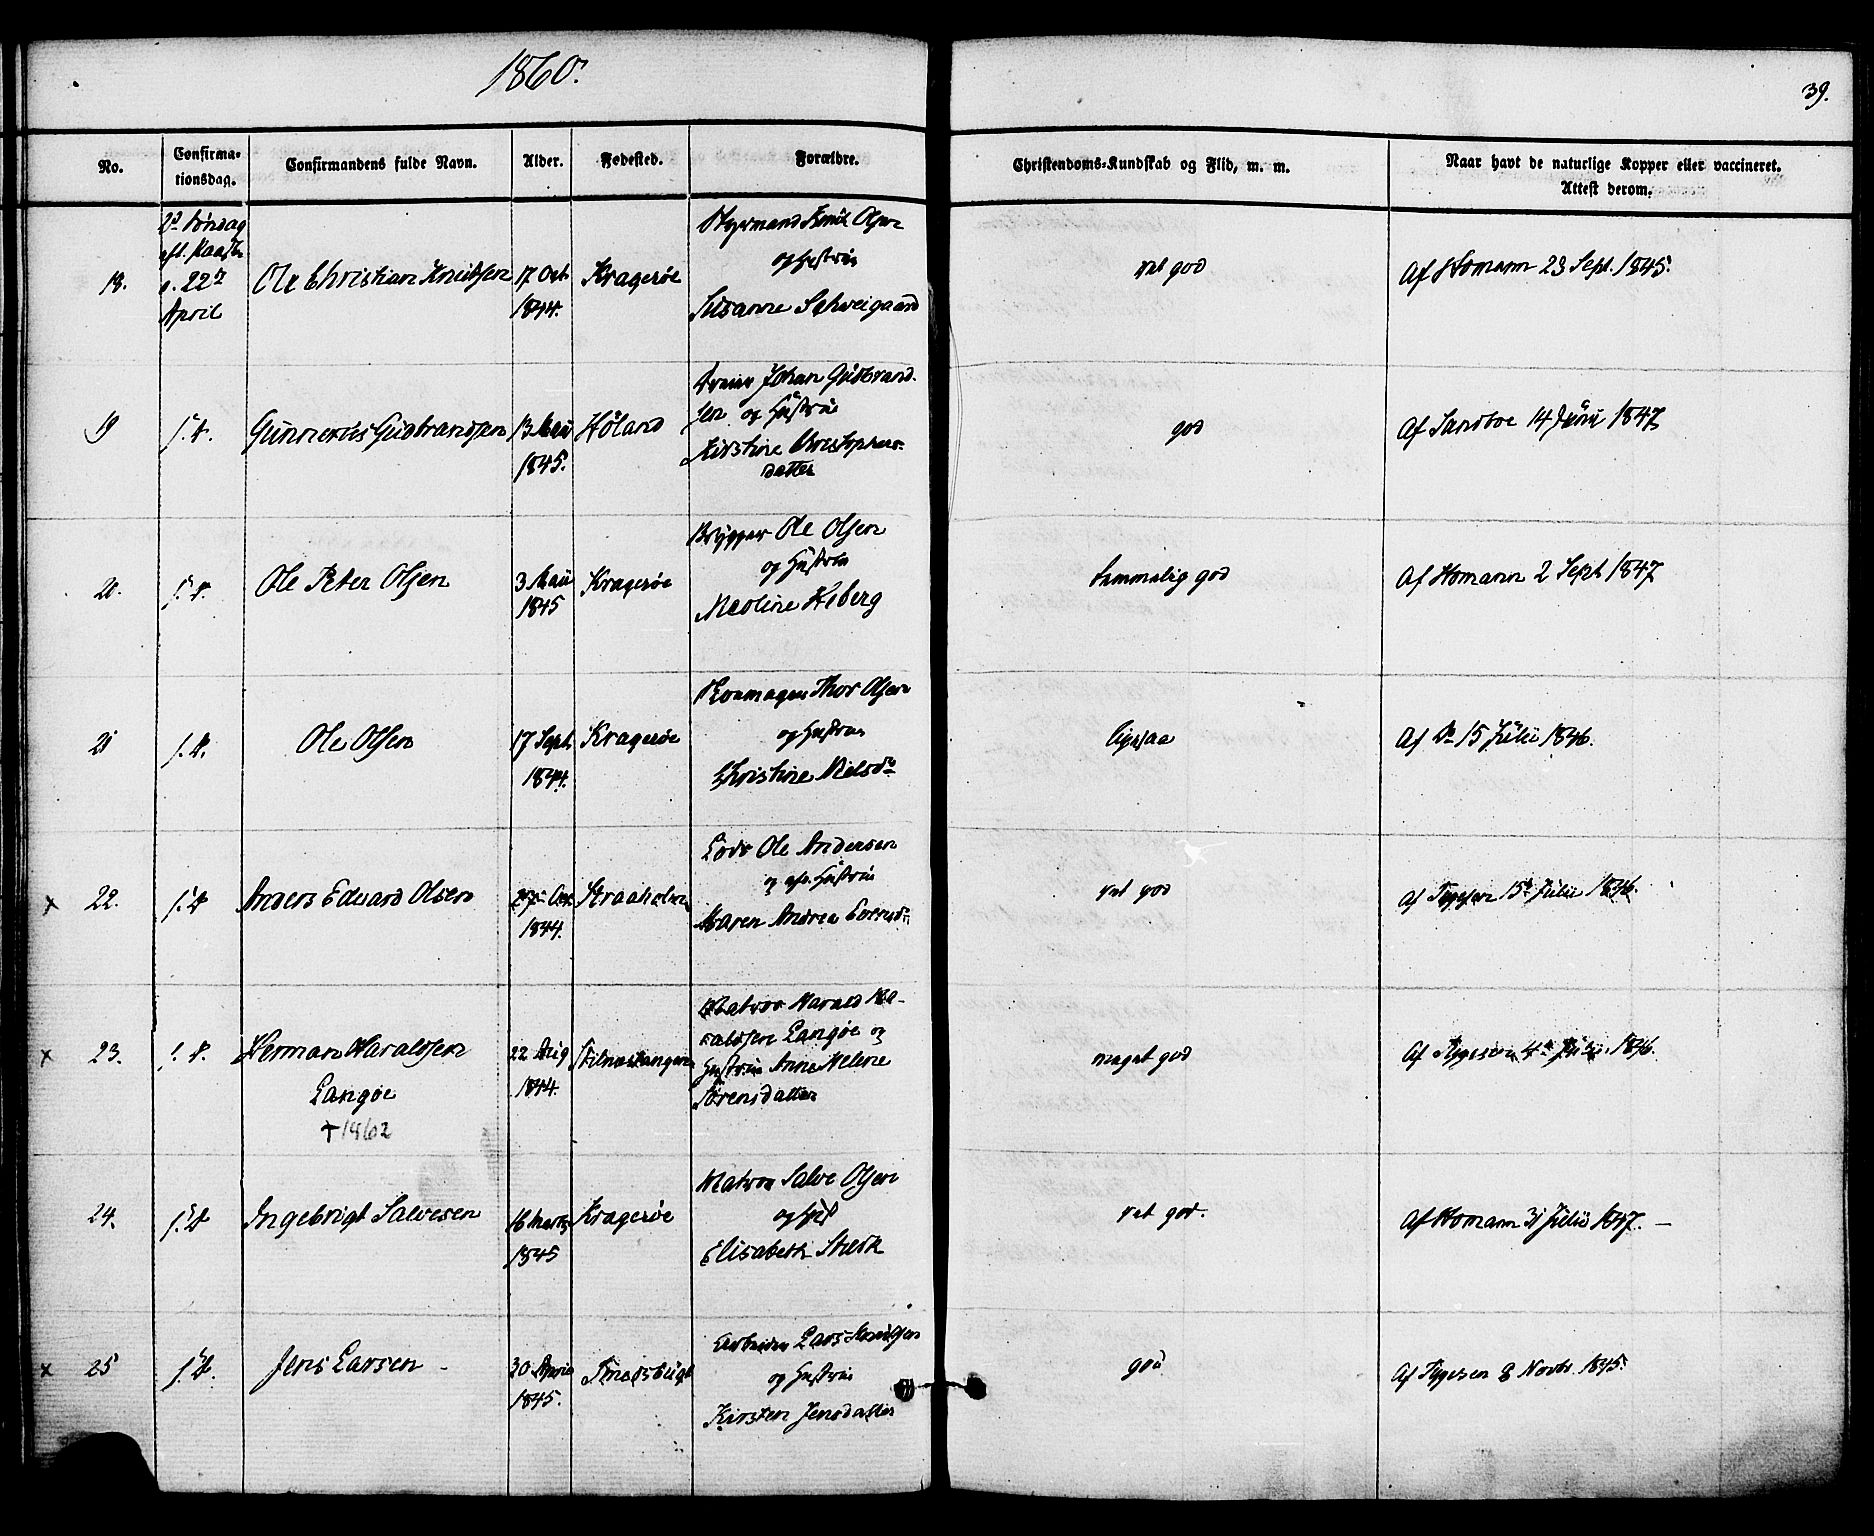 1860.
39.
No.
Confirma-
tionsdag.
Confirmandens fulde Navn.
Alder.
Fødested.
Forældre.
Christendoms-Kundskab og Flid, m. m.
Naar havt de naturlige Kopper eller vaccineret.
Attest derom.
18.
2d Søndag
eft. Paaske
d. 22d
April
Ole Christian Knudsen
17 Oct.
1844.
Kragerøe
Styrmand Knud Olsen
og Hustrue
Susanne Schweigaard
vel god
Af Homann 23 Sept. 1845.
19
s. D.
Gunnerius Gudbrandsen
13 Mai
1845.
Høland
Johan Gudbrand-
sen og Hustrue
Kirstine Christophers-
datter
god
Af Sandboe 14 Juni 1847
20.
s. D.
Ole Peter Olsen
3 Mai
1845
Kragerøe
Brygger Ole Olsen
og Hustrue
Nicoline Kiberg
temmelig god
Af Homann 2 Sept 1847
21
s. D.
Ole Olsen
17 Sept.
1844.
Kragerøe
Thor Olsen
og Hustrue
Christine Nielsdr
ligesaa
Af Do 15 Julii 1846.
x 22.
s. D
Anders Eduard Olsen
27 Oct.
1844.
Straaholmen
Lods Ole Andersen
og afd. Hustrue
Maren Andrea
vel god
Af Tygesen 15de Julii 1846.
x 23.
s. D.
Herman Haraldsen
Langøe
+ 1862
22 Aug
1844.
Stilnestangen
Matros Harald Ha-
raldsen Langøe og
Hustrue Anne Helene
Sørensdatter
meget god
Af Tygesen 4de Julii 1846.
24.
s. D
Ingebrigt Salvesen
16 Martz
1845
Kragerøe
Matros Salve Olsen
og Hust
Elisabeth Stærk
vel god.
Af Homann 31 Julii 1847. —
x 25
s. D.
Jens Larsen
30 April
1845.
Arbeider Lars Knudsen
og Hustrue
Kirsten Jensdatter
god
Af Tygesen 8 Novbr. 1845.